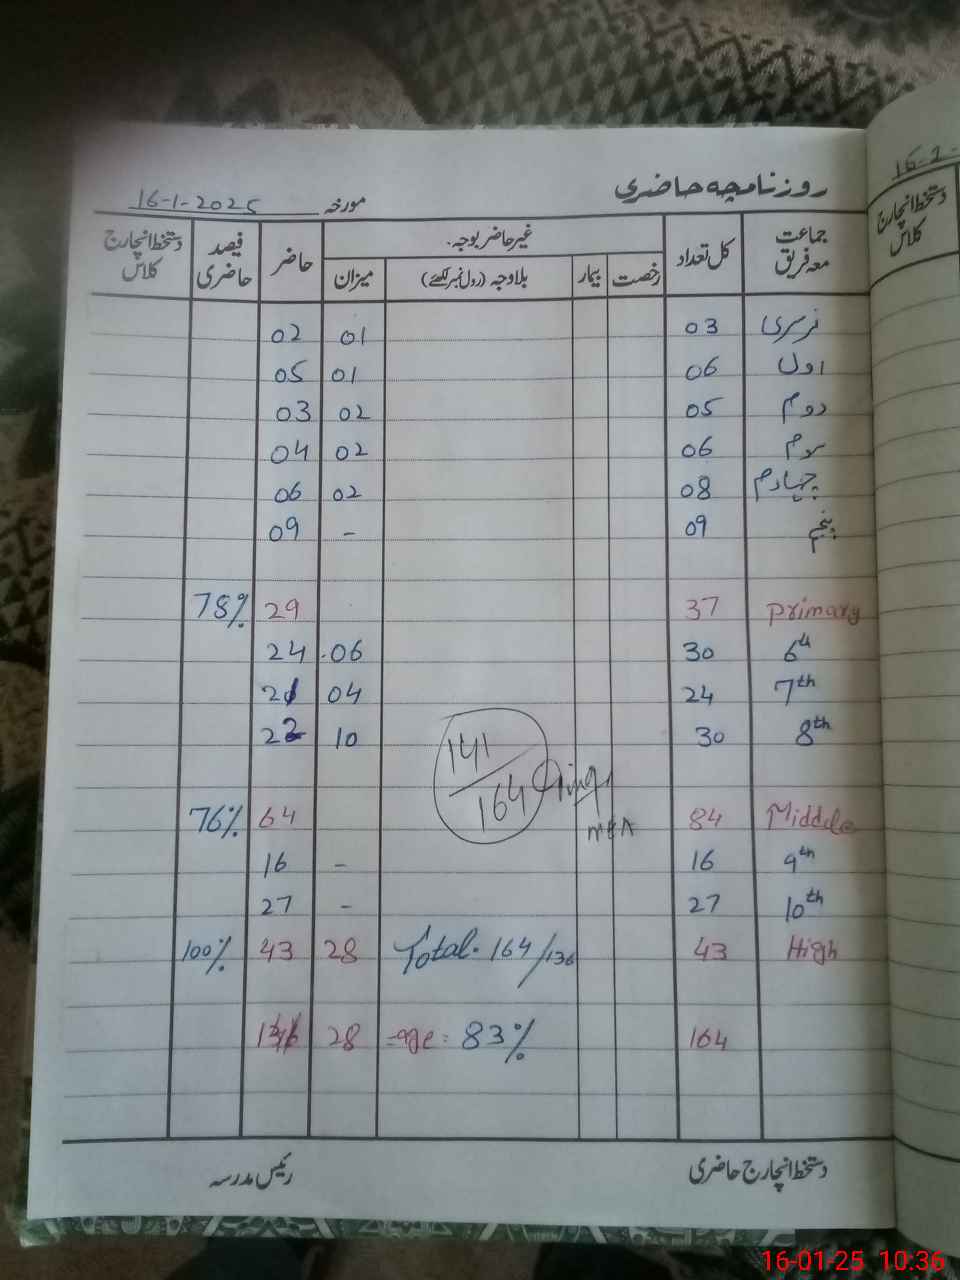 روزنامچہ حاضری
مورخہ 16-1-2025
جماعت معہ فریق کل تعداد غیر حاضر بوجہ۔ حاضر فیصد حاضری دستخط انچارج کلاس
رخصت بیمار بلاوجہ (رول نمبر لکھئے) میزان
نرسری 03 01 02
اول 06 01 05
دوم 05 02 03
سوم 06 02 04
چہارم 08 02 06
پنجم 09 - 09
Primary 37 29 78%
6th 30 06 24
7th 24 04 21
8th 30 10 22
141/164
MEA
Middle 84 64 76%
9th 16 - 16
10th 27 - 27
High 43 Total. 164/136 28 43 100%
164 =age: 83% 28
دستخط انچارج حاضری رئیس مدرسہ
16-1-
دستخط انچارج کلاس
16-01-25 10:36